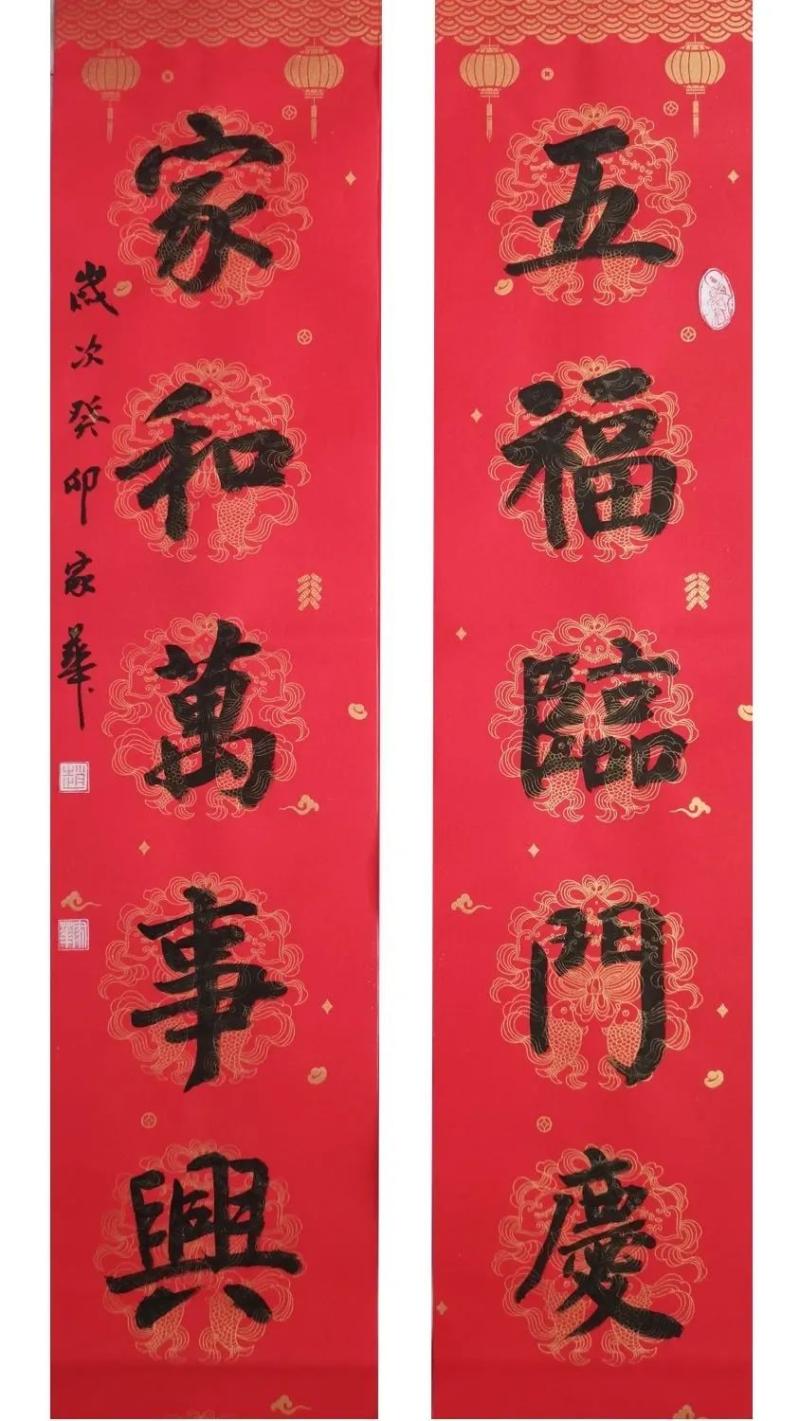 五福臨門慶
家和萬事興
歲次癸卯家華